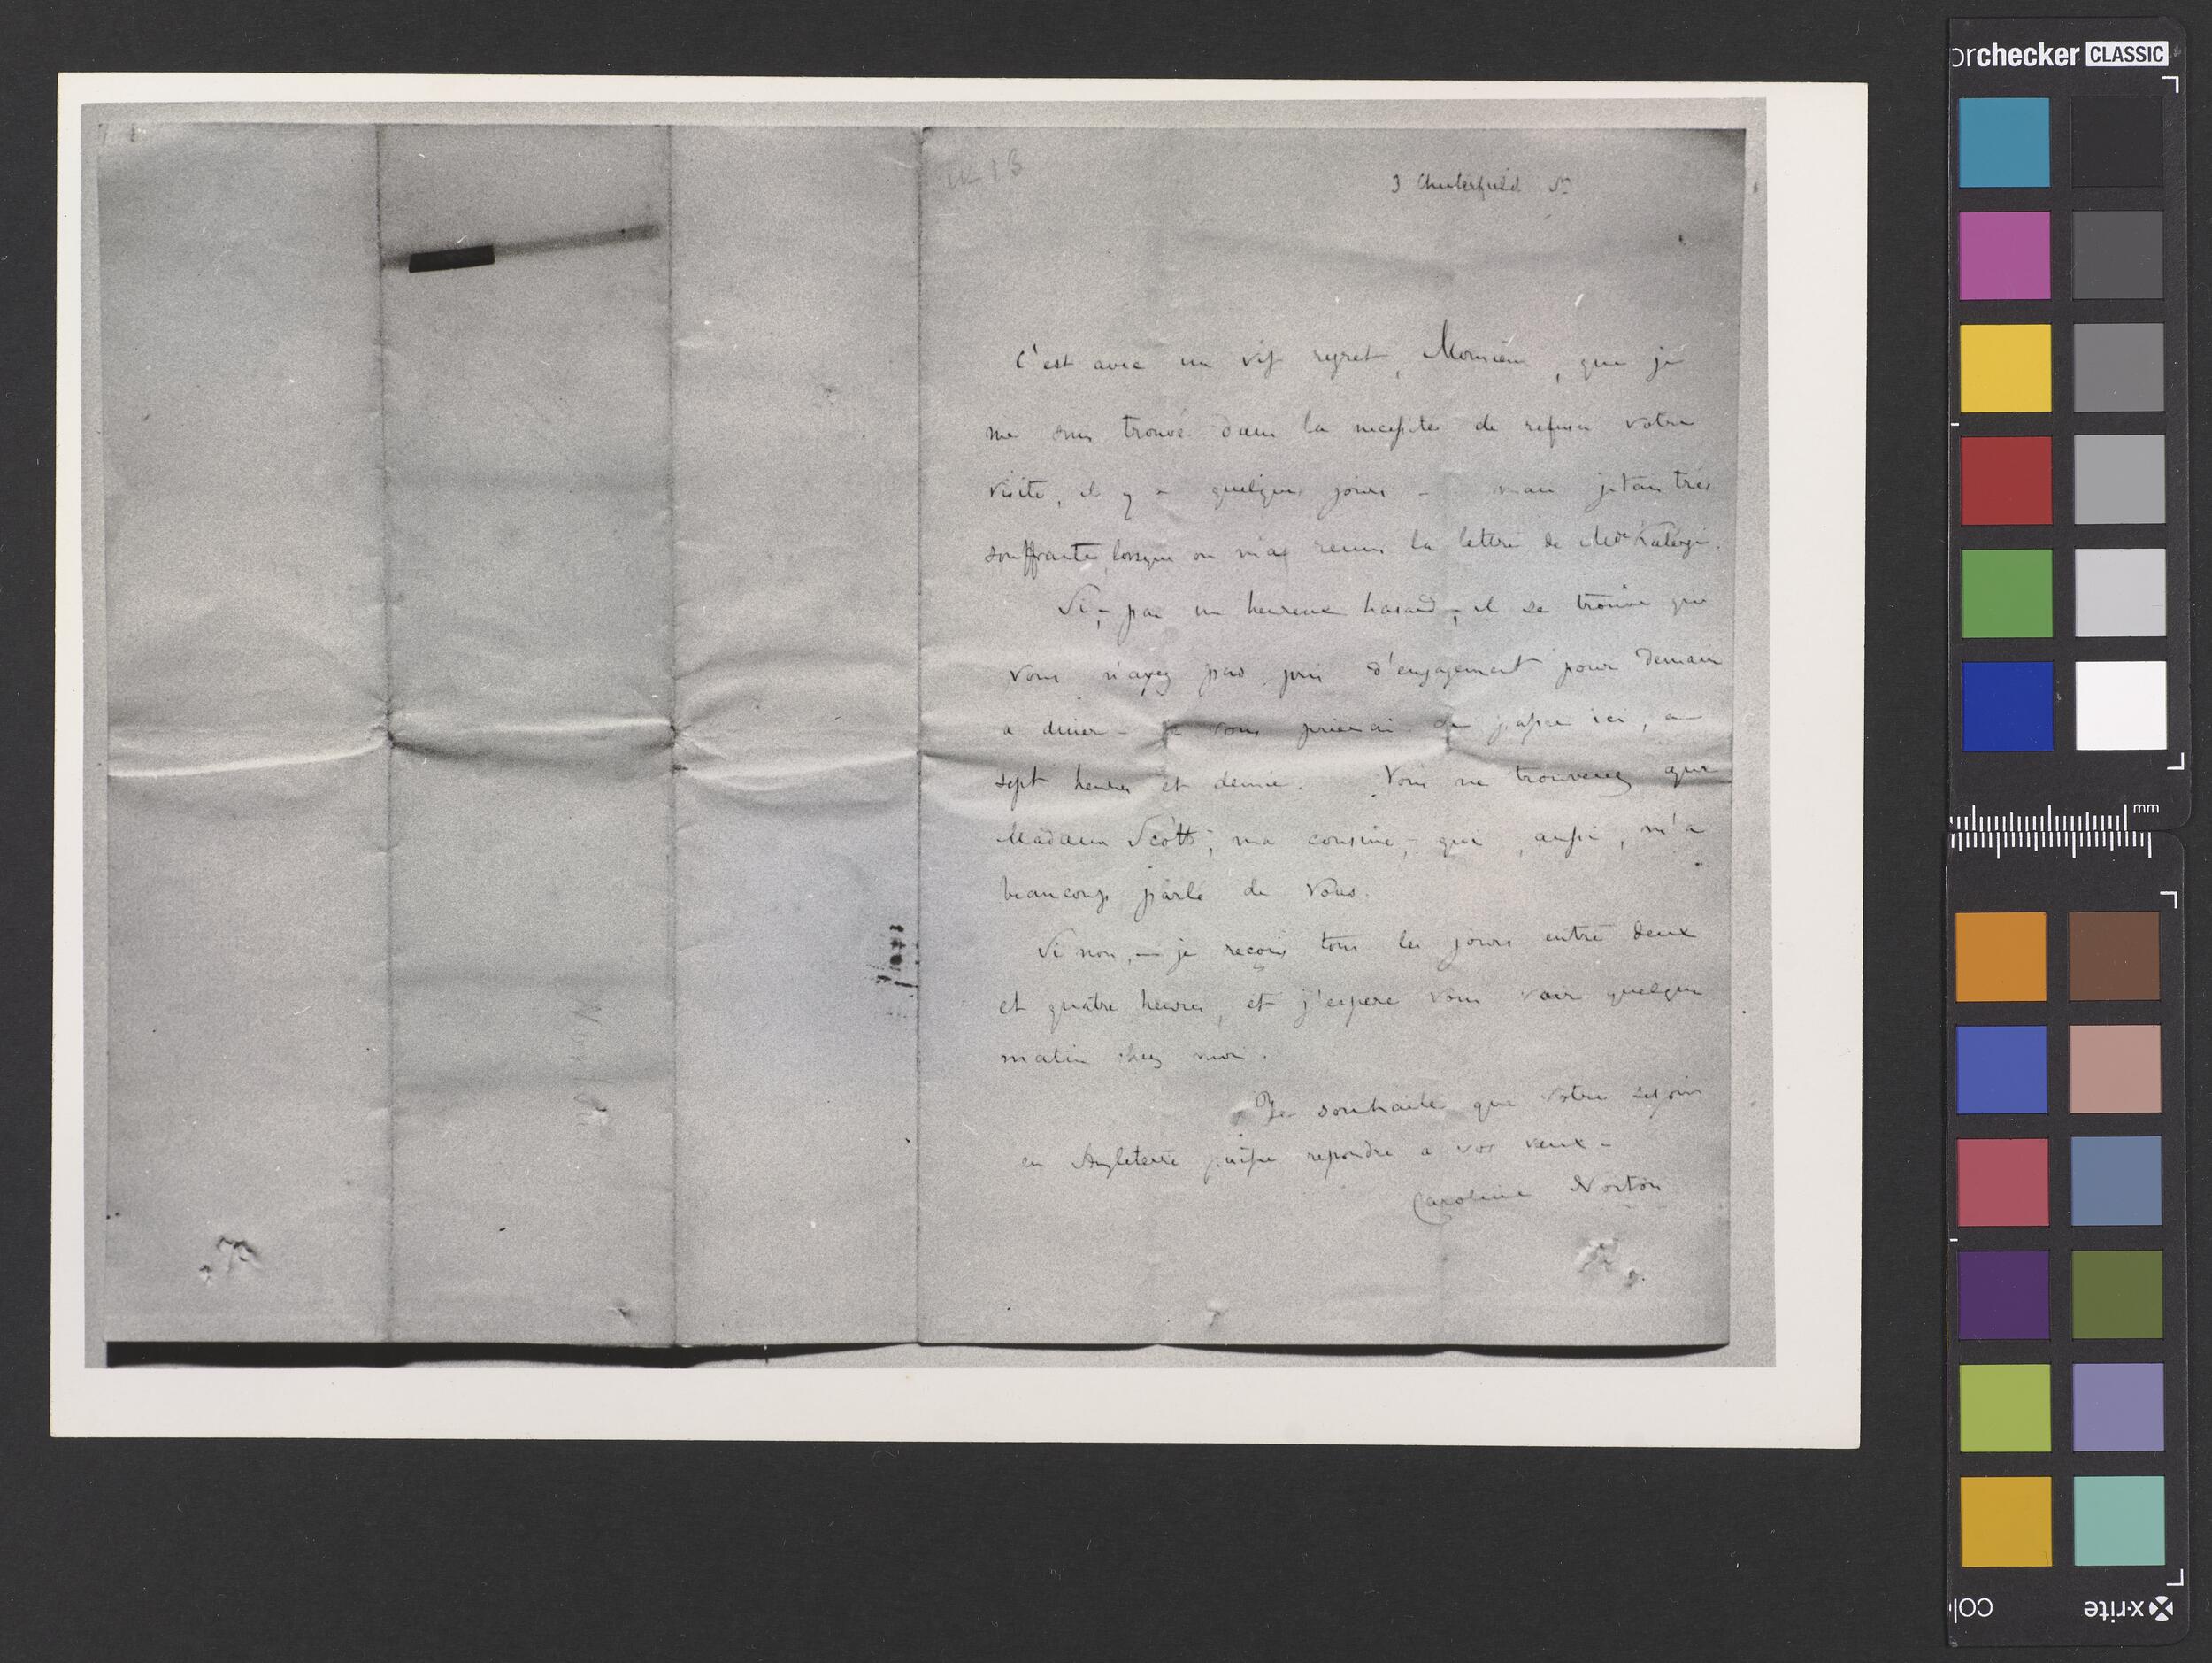 3 Chesterfield St
C'est avec un vif regret, Monsieur, que je
me suis trouvé dans la necessité de refuser votre
visite, il y a quelques jours - mais j'etais très
souffrante, lorsque on m'a remis la lettre de Mde Kalergi.
Si, - par un heureux hasard, - il se trouve que
vous n'ayez pas pris d'engagement pour demain
a diner - je vous prierai de passer ici, a
sept heures et demie. Vous ne trouverez que
Madame Scott; ma cousine, - qui, aussi, m'a
beaucoup parlé de vous.
Si non, - je reçois tous les jours entre deux
et quatre heures, et j'espere vous voir quelque
matin chez moi.
Je souhaite que votre sejour
en Angleterre puisse repondre a vos vœux -
Caroline Norton
orchecker CLASSIC
mm
x-rite
col